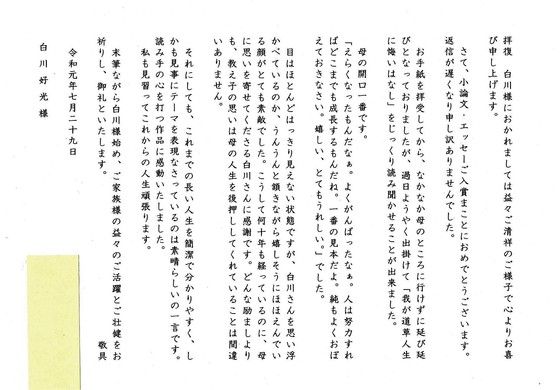 拝復　白川様におかれましては益々ご清祥のご様子で心よりお喜
び申し上げます。
さて、小論文・エッセーご入賞まことにおめでとうございます。
返信が遅くなり申し訳ありませんでした。
お手紙を拝受してから、なかなか母のところに行けずに延び延
びとなっておりましたが、過日ようやく出掛けて「我が道草人生
に悔いはなし」をじっくり読み聞かせることが出来ました。
母の開口一番です。
「えらくなったもんだなぁ。よくがんばったなぁ。人は努力すれ
ばどこまでも成長するもんだね。一番の見本だよ。純もよくおぼ
えておきなさい。嬉しい、とてもうれしい。」でした。
目はほとんどはっきり見えない状態ですが、白川さんを思い浮
かべているのか、うんうんと頷きながら嬉しそうにほほえんでい
る顔がとても素敵でした。こうして何十年も経っているのに、母
に思いを寄せてくださる白川さんに感謝です。どんな励ましより
も、教え子の思いは母の人生を後押ししてくれていることは間違
いありません。
それにしても、これまでの長い人生を簡潔で分かりやすく、し
かも見事にテーマを表現なさっているのは素晴らしいの一言です。
読み手の心を打つ作品に感動いたしました。
私も見習ってこれからの人生頑張ります。
末筆ながら白川様始め、ご家族様の益々のご活躍とご壮健をお
祈りし、御礼といたします。　敬具
令和元年七月二十九日
白川好光様